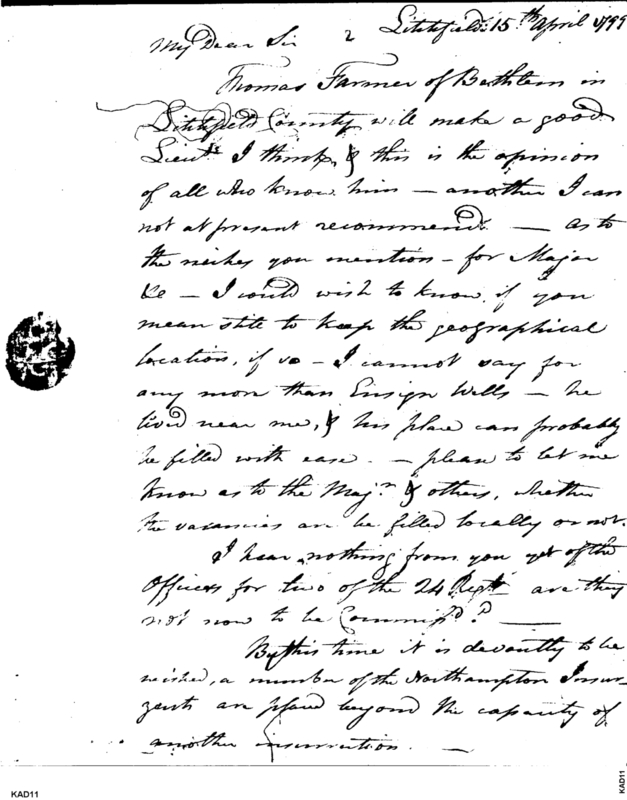 Litchfield 15th April 1799
My Dear Sir
Thomas Farmer of Bethlem in
Litchfield County will make a good
Lieut. I think, & this is the opinion
of all who know him — another I can
not at present recommend. — as to
the niches you mention — for Major
&c — I would wish to know, if you
mean still to keep the geographical
location, if so — I cannot say for
any more than Ensign Wells — he
lived near me, & his place can probably
be filled with ease. — please to let me
know as to the Majr. & others, whether
the vacancies are be filled locally or not.
I hear nothing from you yet of the
Officers for two of the 24 Regts. are they
not now to be Commissd.? —
By this time it is devoutly to be
wished, a number of the Northampton Insur-
gents are placed beyond the capacity of
another insurrection. —
KAD11
KAD11